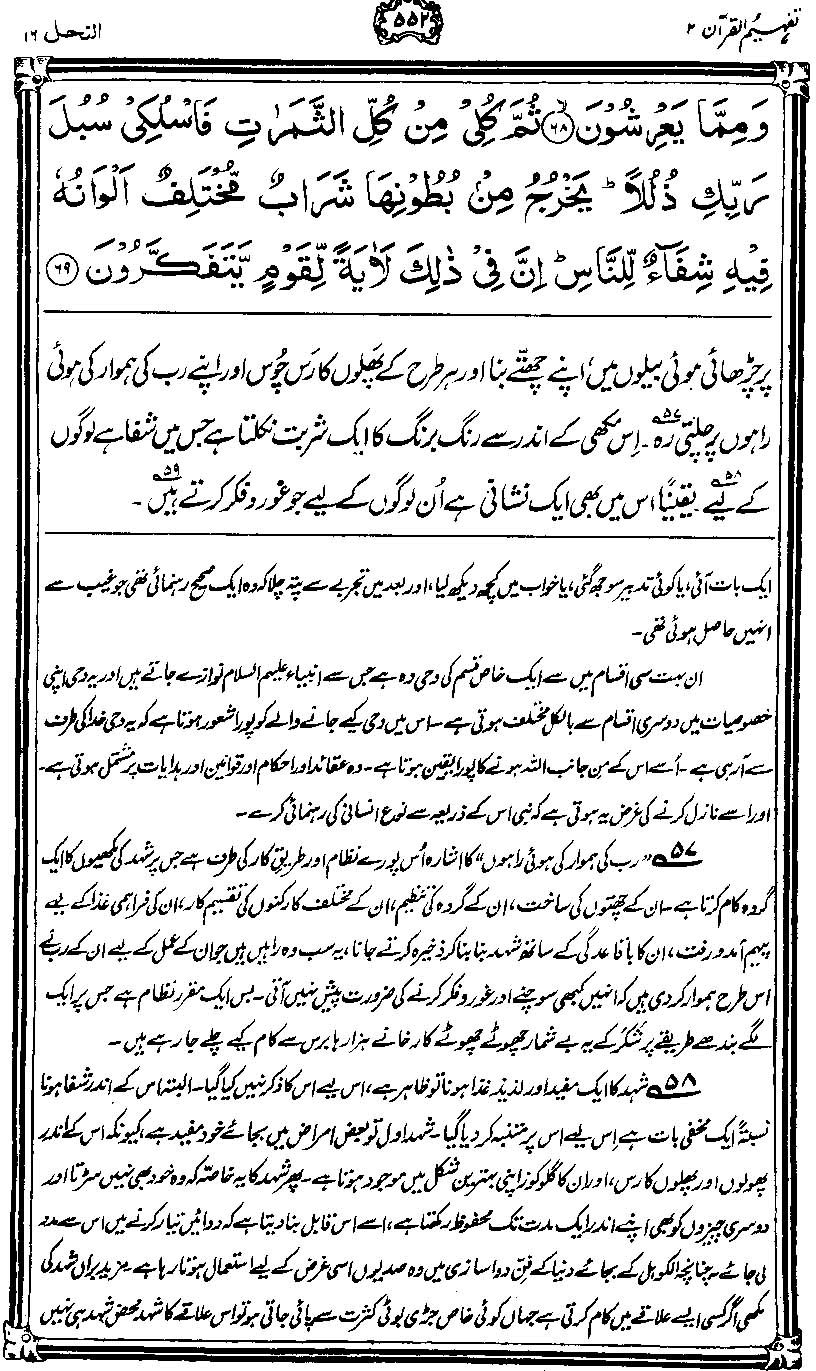 تفہیم القرآن ۲
۵۵۲
النحل ۱۶
وَمِمَّا يَعْرِشُوْنَ ۙ۶۸ ثُمَّ كُلِيْ مِنْ كُلِّ الثَّمَرٰتِ فَاسْلُكِيْ سُبُلَ
رَبِّكِ ذُلُلًا ؕ يَخْرُجُ مِنْۢ بُطُوْنِهَا شَرَابٌ مُّخْتَلِفٌ اَلْوَانُهٗ
فِيْهِ شِفَآءٌ لِّلنَّاسِ ؕ اِنَّ فِيْ ذٰلِكَ لَاٰيَةً لِّقَوْمٍ يَّتَفَكَّرُوْنَ ۶۹
پر چڑھائی ہوئی بیلوں میں، اپنے چھتّے بنا اور ہر طرح کے پھلوں کا رَس چُوس اور اپنے رب کی ہموار کی ہوئی
راہوں پر چلتی رہ۵۷۔ اِس مکھی کے اندر سے رنگ برنگ کا ایک شربت نکلتا ہے جس میں شفا ہے لوگوں
کے لیے۵۸۔ یقینًا اس میں بھی ایک نشانی ہے اُن لوگوں کے لیے جو غور و فکر کرتے ہیں۵۹۔
ایک بات آئی، یا کوئی تدبیر سوجھ گئی، یا خواب میں کچھ دیکھ لیا، اور بعد میں تجربے سے پتہ چلا کہ وہ ایک صحیح رہنمائی تھی جو غیب سے
انہیں حاصل ہوئی تھی۔
ان بہت سی اقسام میں سے ایک خاص قسم کی وحی وہ ہے جس سے انبیاء علیہم السلام نوازے جاتے ہیں اور یہ وحی اپنی
خصوصیات میں دوسری اقسام سے بالکل مختلف ہوتی ہے۔ اس میں وحی کیے جانے والے کو پورا شعور ہوتا ہے کہ یہ وحی خدا کی طرف
سے آ رہی ہے۔ اُسے اس کے من جانب اللہ ہونے کا پورا یقین ہوتا ہے۔ وہ عقائد اور احکام اور قوانین اور ہدایات پر مشتمل ہوتی ہے۔
اور اسے نازل کرنے کی غرض یہ ہوتی ہے کہ نبی اس کے ذریعہ سے نوع انسانی کی رہنمائی کرے۔
۵۷ ”رب کی ہموار کی ہوئی راہوں“ کا اشارہ اُس پورے نظام اور طریق کار کی طرف ہے جس پر شہد کی مکھیوں کا ایک
گروہ کام کرتا ہے۔ ان کے چھتوں کی ساخت، ان کے گروہ کی تنظیم، ان کے مختلف کارکنوں کی تقسیم کار، ان کی فراہمی غذا کے لیے
پیہم آمد و رفت، ان کا باقاعدگی کے ساتھ شہد بنا بنا کر ذخیرہ کرتے جانا، یہ سب وہ راہیں ہیں جو ان کے عمل کے لیے ان کے رب نے
اس طرح ہموار کر دی ہیں کہ انہیں کبھی سوچنے اور غور و فکر کرنے کی ضرورت پیش نہیں آتی۔ بس ایک مقرر نظام ہے جس پر ایک
لگے بندھے طریقے پر شکر کے یہ بے شمار چھوٹے چھوٹے کارخانے ہزارہا برس سے کام کیے چلے جا رہے ہیں۔
۵۸ شہد کا ایک مفید اور لذیذ غذا ہونا تو ظاہر ہے، اس لیے اس کا ذکر نہیں کیا گیا۔ البتہ اس کے اندر شفا ہونا
نسبتًا ایک مخفی بات ہے اِس لیے اس پر متنبہ کر دیا گیا۔ شہد اول تو بعض امراض میں بجائے خود مفید ہے، کیونکہ اس کے اندر
پھولوں اور پھلوں کا رس، اور ان کا گلوکوز اپنی بہترین شکل میں موجود ہوتا ہے۔ پھر شہد کا یہ خاصہ کہ وہ خود بھی نہیں سڑتا اور
دوسری چیزوں کو بھی اپنے اندر ایک مدت تک محفوظ رکھتا ہے، اسے اس قابل بنا دیتا ہے کہ دوائیں تیار کرنے میں اس سے مدد
لی جائے۔ چنانچہ الکوہل کے بجائے دنیا کے فن دوا سازی میں وہ صدیوں اسی غرض کے لیے استعمال ہوتا رہا ہے۔ مزید براں شہد کی
مکھی اگر کسی ایسے علاقے میں کام کرتی ہے جہاں کوئی خاص جڑی بوٹی کثرت سے پائی جاتی ہو تو اس علاقے کا شہد محض شہد ہی نہیں